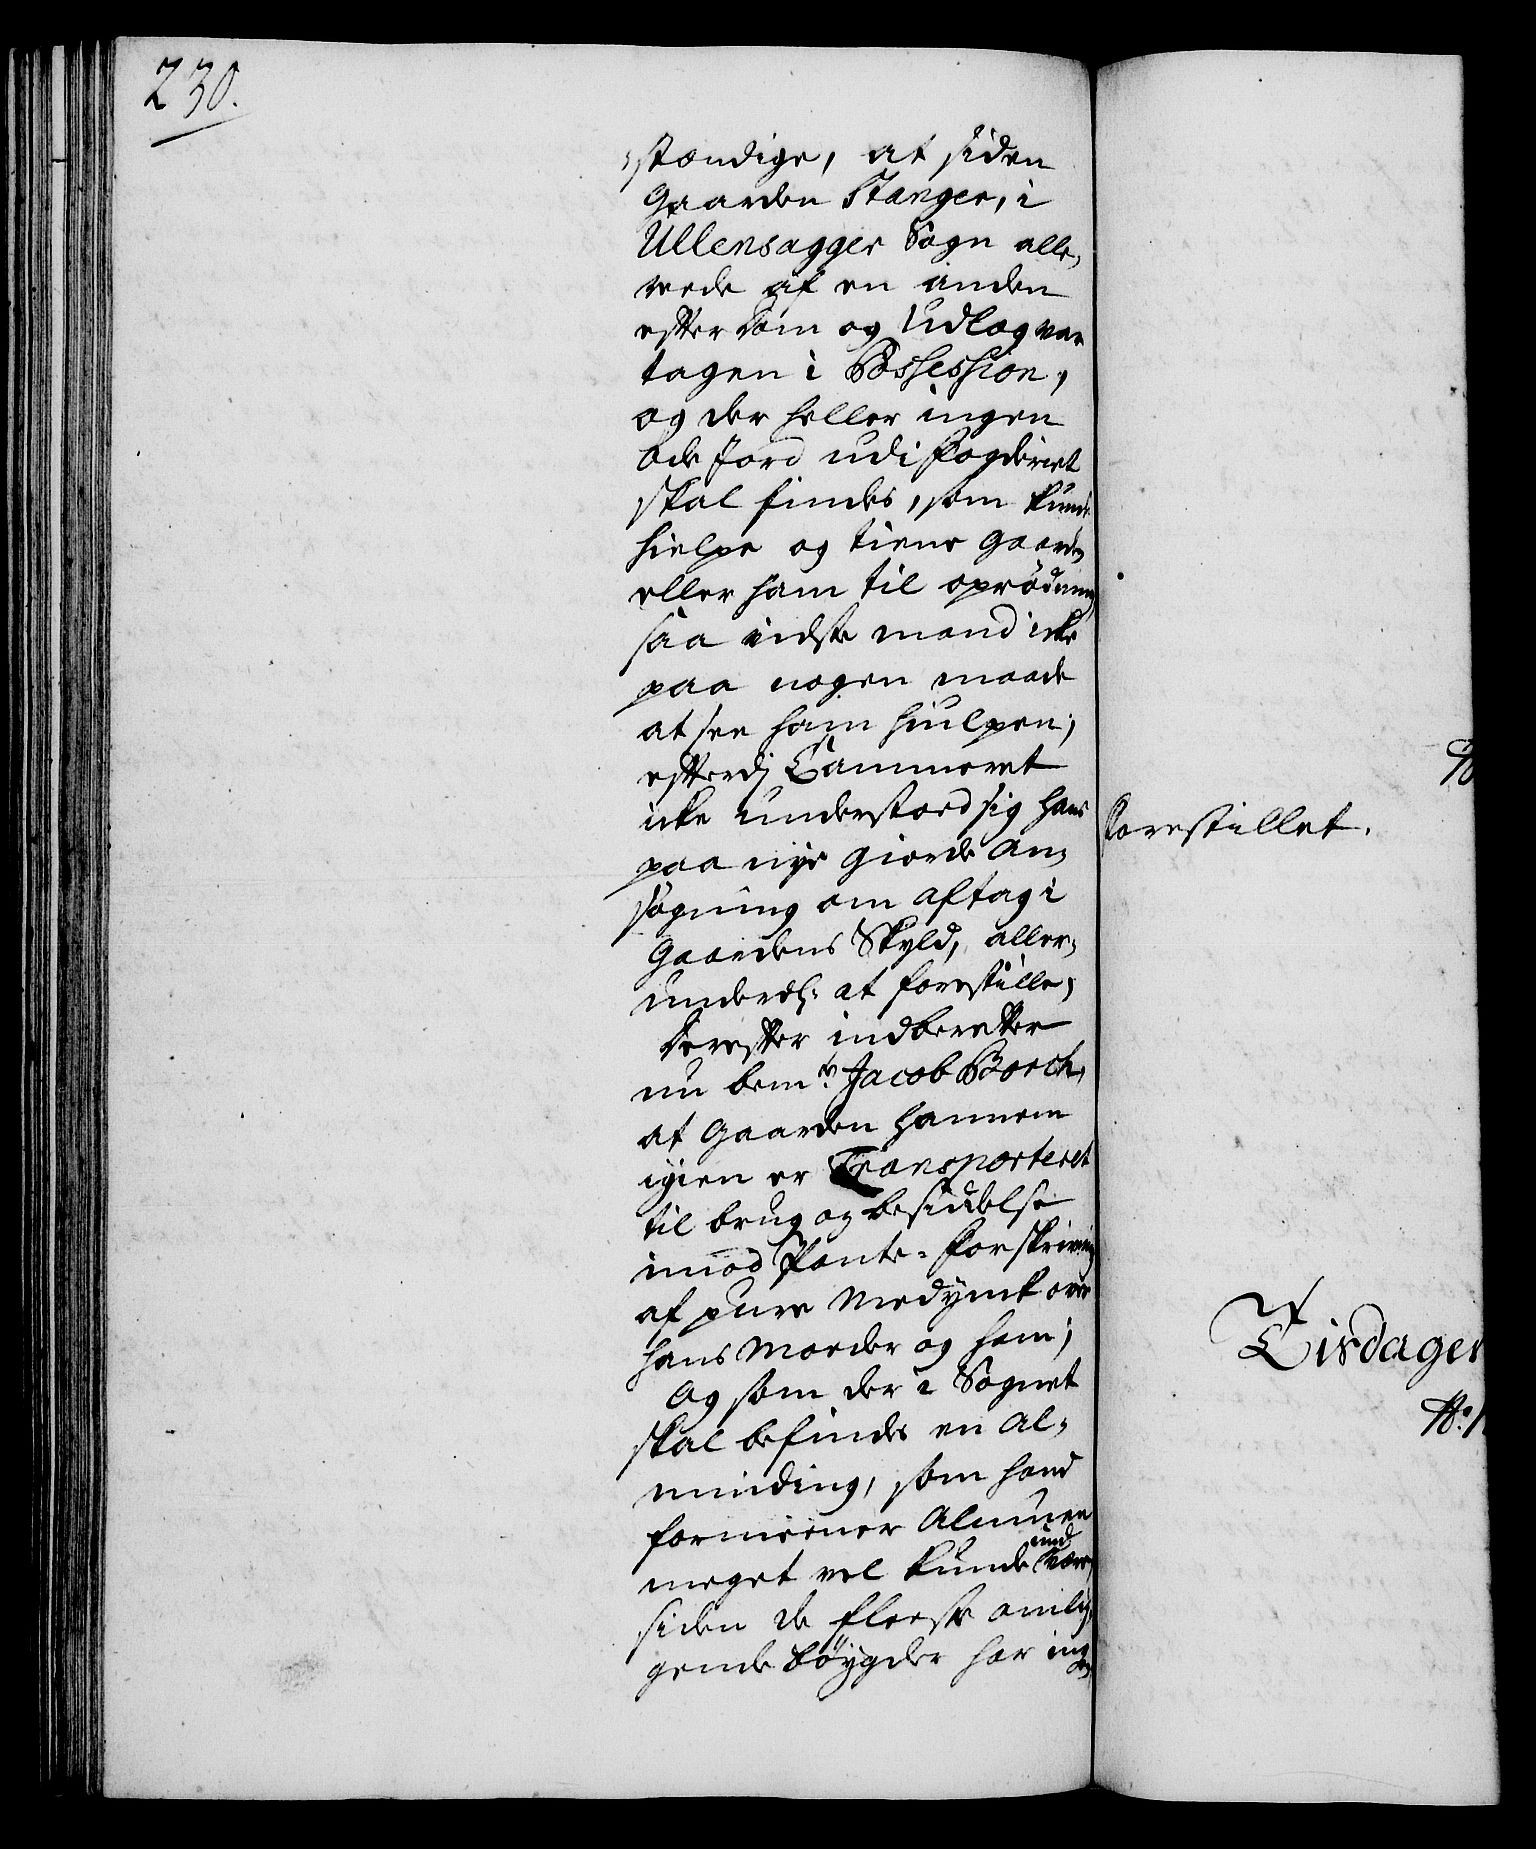 230.
stændige, at siden
Gaarden Stanger, i
Ullensagger Sogn alle,
rede af en anden
efter Dom og Udlæg var
tagen i Possession,
og der heller ingen
öde Jord udi fogderiet
skal findes, som kunde
hielpe og tiene Gaarden
eller ham til oprödning
saa vidste mand icke
paa nogen maade
at see ham hiulpen;
efterdj Cammeret
icke understoed sig hans
paa nye giorde An,
sögning om aftag i
Gaardens Skyld, aller,
underd: at forestille;
Derefter indberetter
nu bemte Jacob Borch,
at Gaarden hannem
igien er Transporteret
til brug og besiddelse
imod Pante-forskrivning
af pure Medynck over
hans Moeder og ham;
Og som der i Sognet
skal befindes en Al,
minding, som hand
formeener Almuen
meget vel kunde und være,
siden de fleeste omlig,
gende böygder har ingen
forestillet.
Tirdagen
No. 1